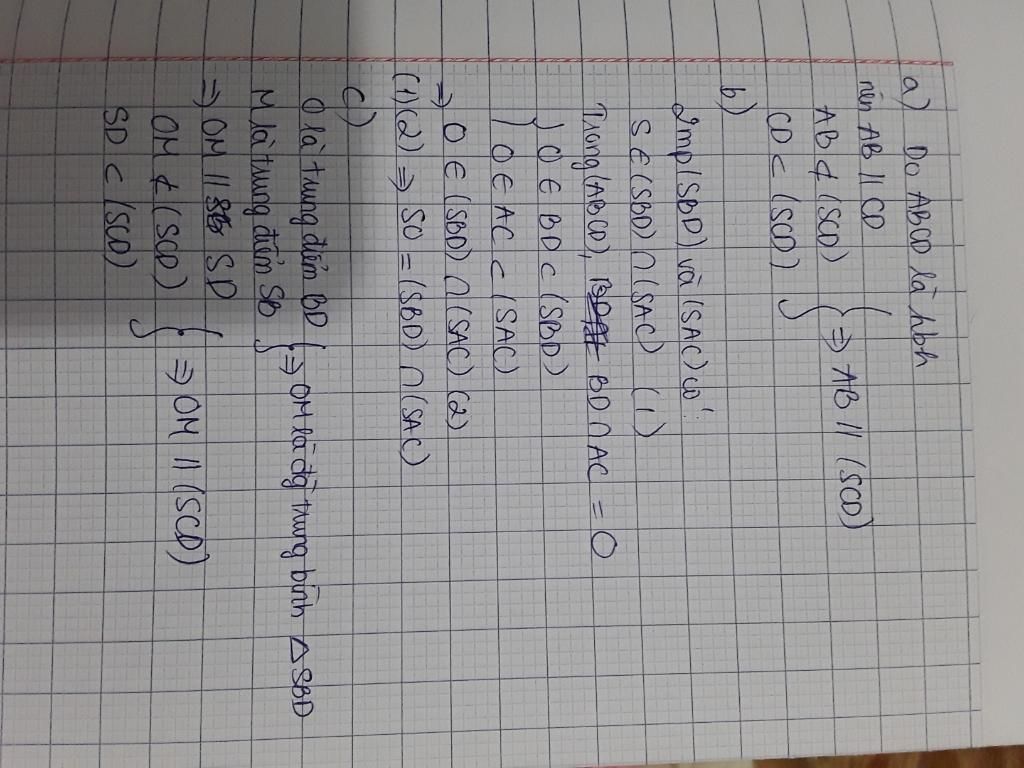 a) Do ABCD là hbh
nên AB // CD
AB ⊄ (SCD) } ⇒ AB // (SCD)
CD ⊂ (SCD)
b)
2mp (SBD) và (SAC) có:
S ∈ (SBD) ∩ (SAC) (1)
Trong (ABCD), BD ∩ AC = O
{ O ∈ BD ⊂ (SBD)
O ∈ AC ⊂ (SAC)
⇒ O ∈ (SBD) ∩ (SAC) (2)
(1)(2) ⇒ SO = (SBD) ∩ (SAC)
c)
O là trung điểm BD } ⇒ OM là đg trung bình △SBD
M là trung điểm SB
⇒ OM // SD
OM ⊄ (SCD) } ⇒ OM // (SCD)
SD ⊂ (SCD)